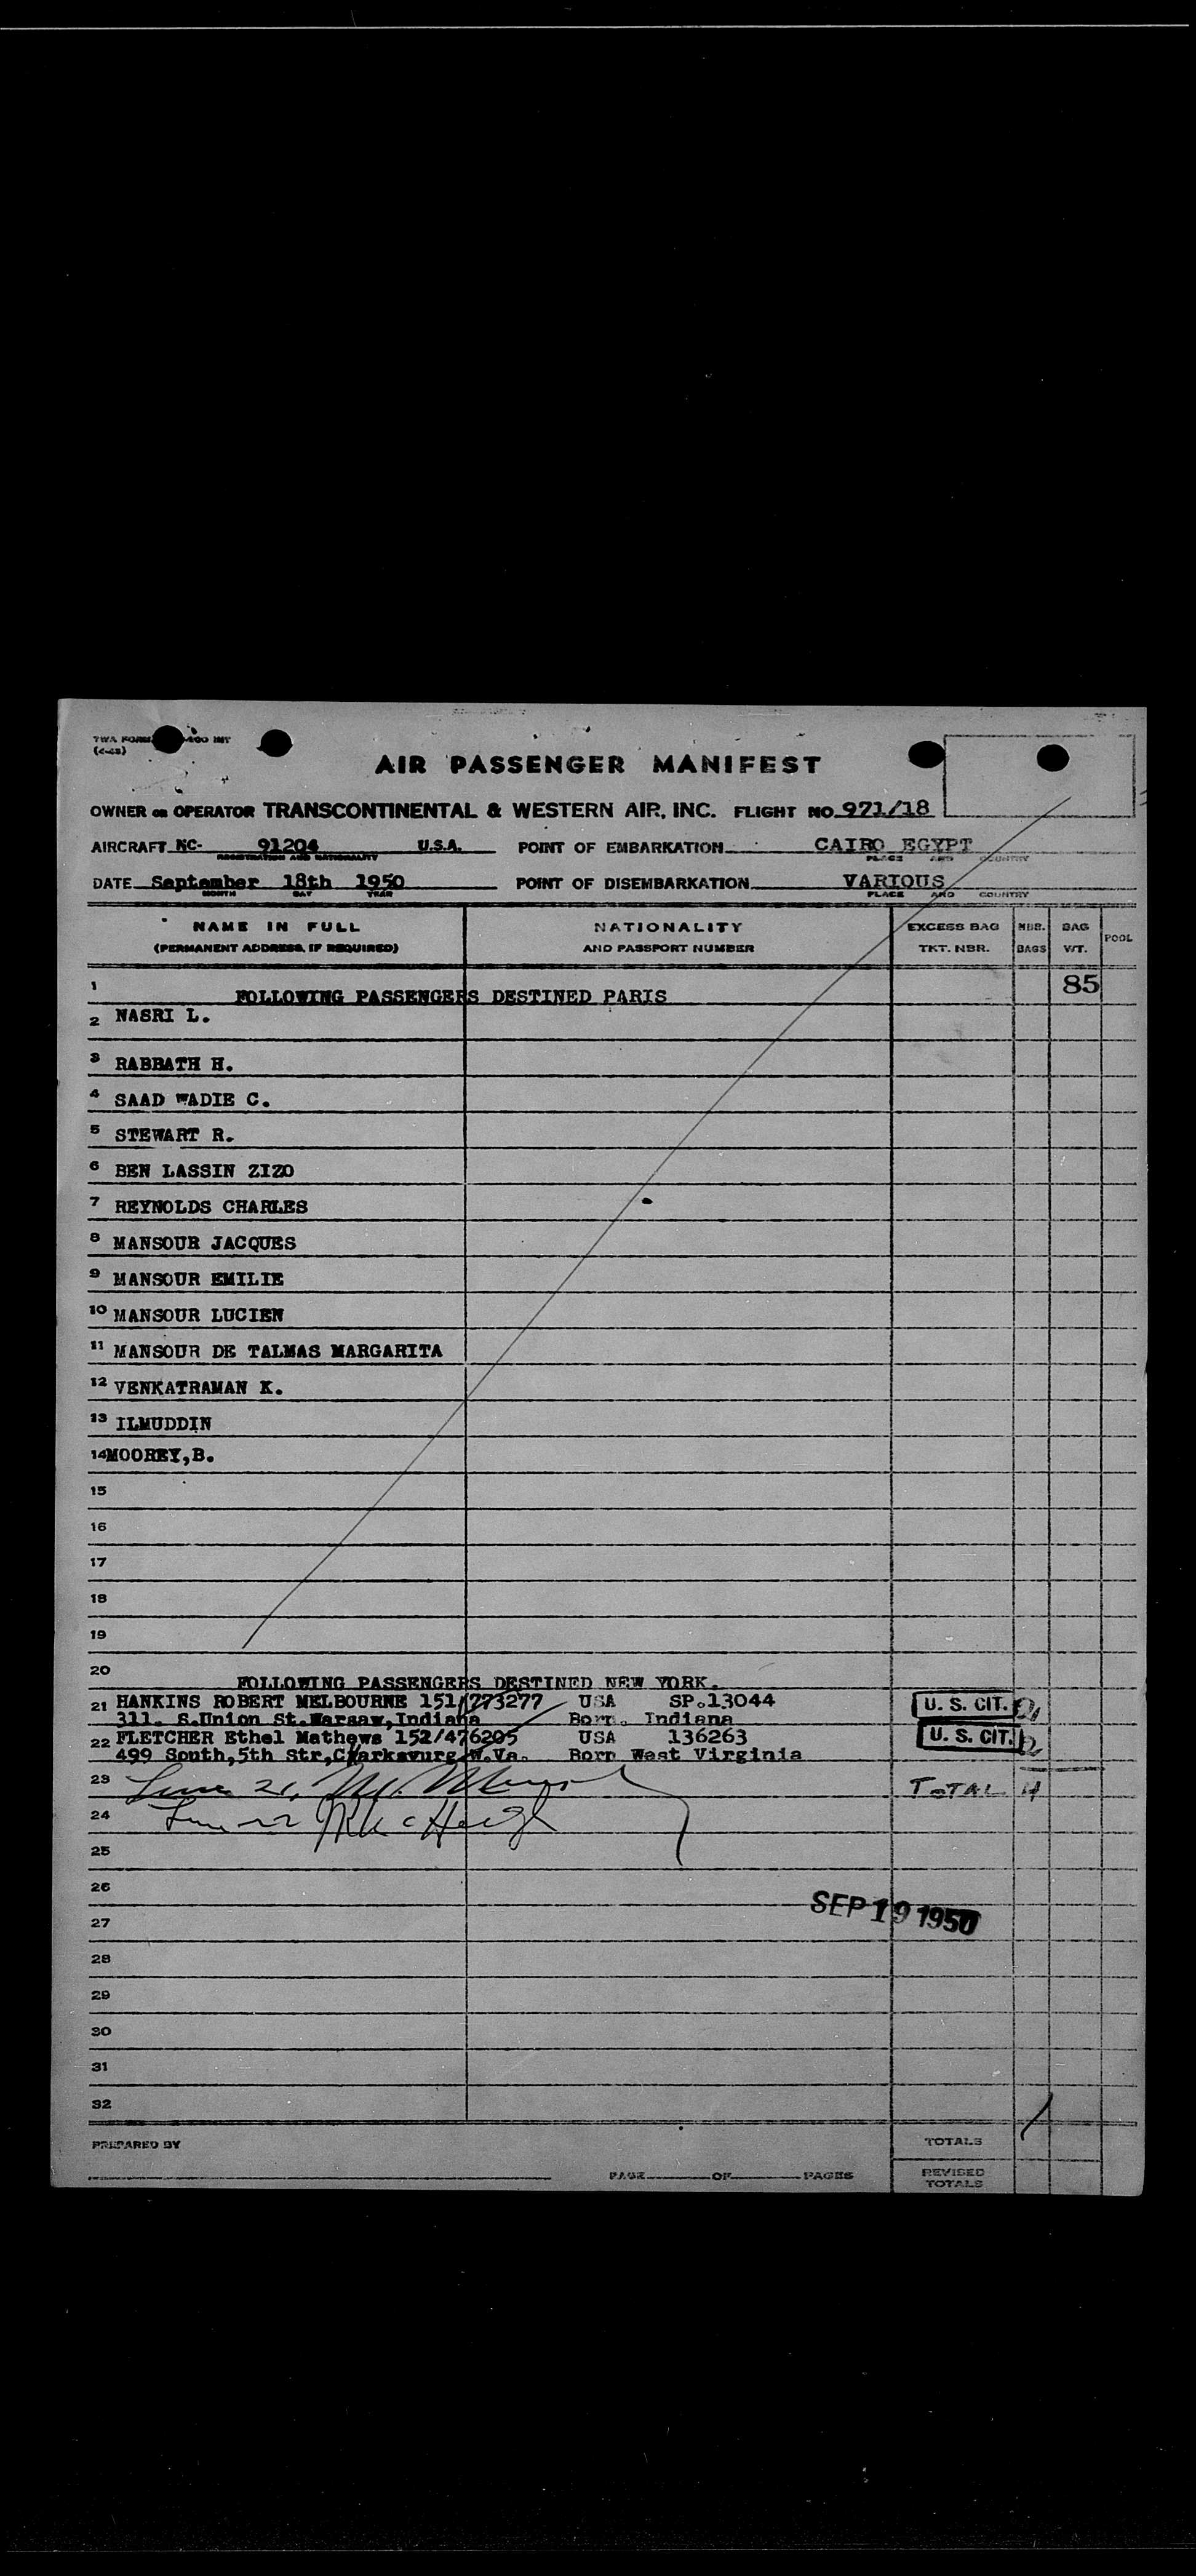 TWA FORM 400 INT
(4-48)
AIR PASSENGER MANIFEST
OWNER OR OPERATOR TRANSCONTINENTAL & WESTERN AIR, INC. FLIGHT NO. 971/18
AIRCRAFT NC- 91204 U.S.A. POINT OF EMBARKATION CAIRO EGYPT
REGISTRATION AND NATIONALITY PLACE AND COUNTRY
DATE September 18th 1950 POINT OF DISEMBARKATION VARIOUS
MONTH DAY YEAR PLACE AND COUNTRY
NAME IN FULL NATIONALITY EXCESS BAG NBR. BAG POOL
(PERMANENT ADDRESS, IF REQUIRED) AND PASSPORT NUMBER TKT. NBR. BAGS WT.
1 FOLLOWING PASSENGERS DESTINED PARIS 85
2 NASRI L.
3 RABBATH H.
4 SAAD WADIE C.
5 STEWART R.
6 BEN LASSIN ZIZO
7 REYNOLDS CHARLES
8 MANSOUR JACQUES
9 MANSOUR EMILIE
10 MANSOUR LUCIEN
11 MANSOUR DE TALMAS MARGARITA
12 VENKATRAMAN K.
13 ILMUDDIN
14 MOOREY,B.
15
16
17
18
19
20 FOLLOWING PASSENGERS DESTINED NEW YORK.
21 HANKINS ROBERT MELBOURNE 151/273277 USA SP.13044 U. S. CIT.
311. S.Union St.Warsaw,Indiana Born. Indiana
22 FLETCHER Ethel Mathews 152/476205 USA 136263 U. S. CIT.
499 South,5th Str,Clarksvurg W.Va. Born West Virginia
23 Line 21, TOTAL 4
24 Line 22
25
26
SEP 19 1950
27
28
29
30
31
32
PREPARED BY TOTALS
PAGE OF PAGES REVISED TOTALS